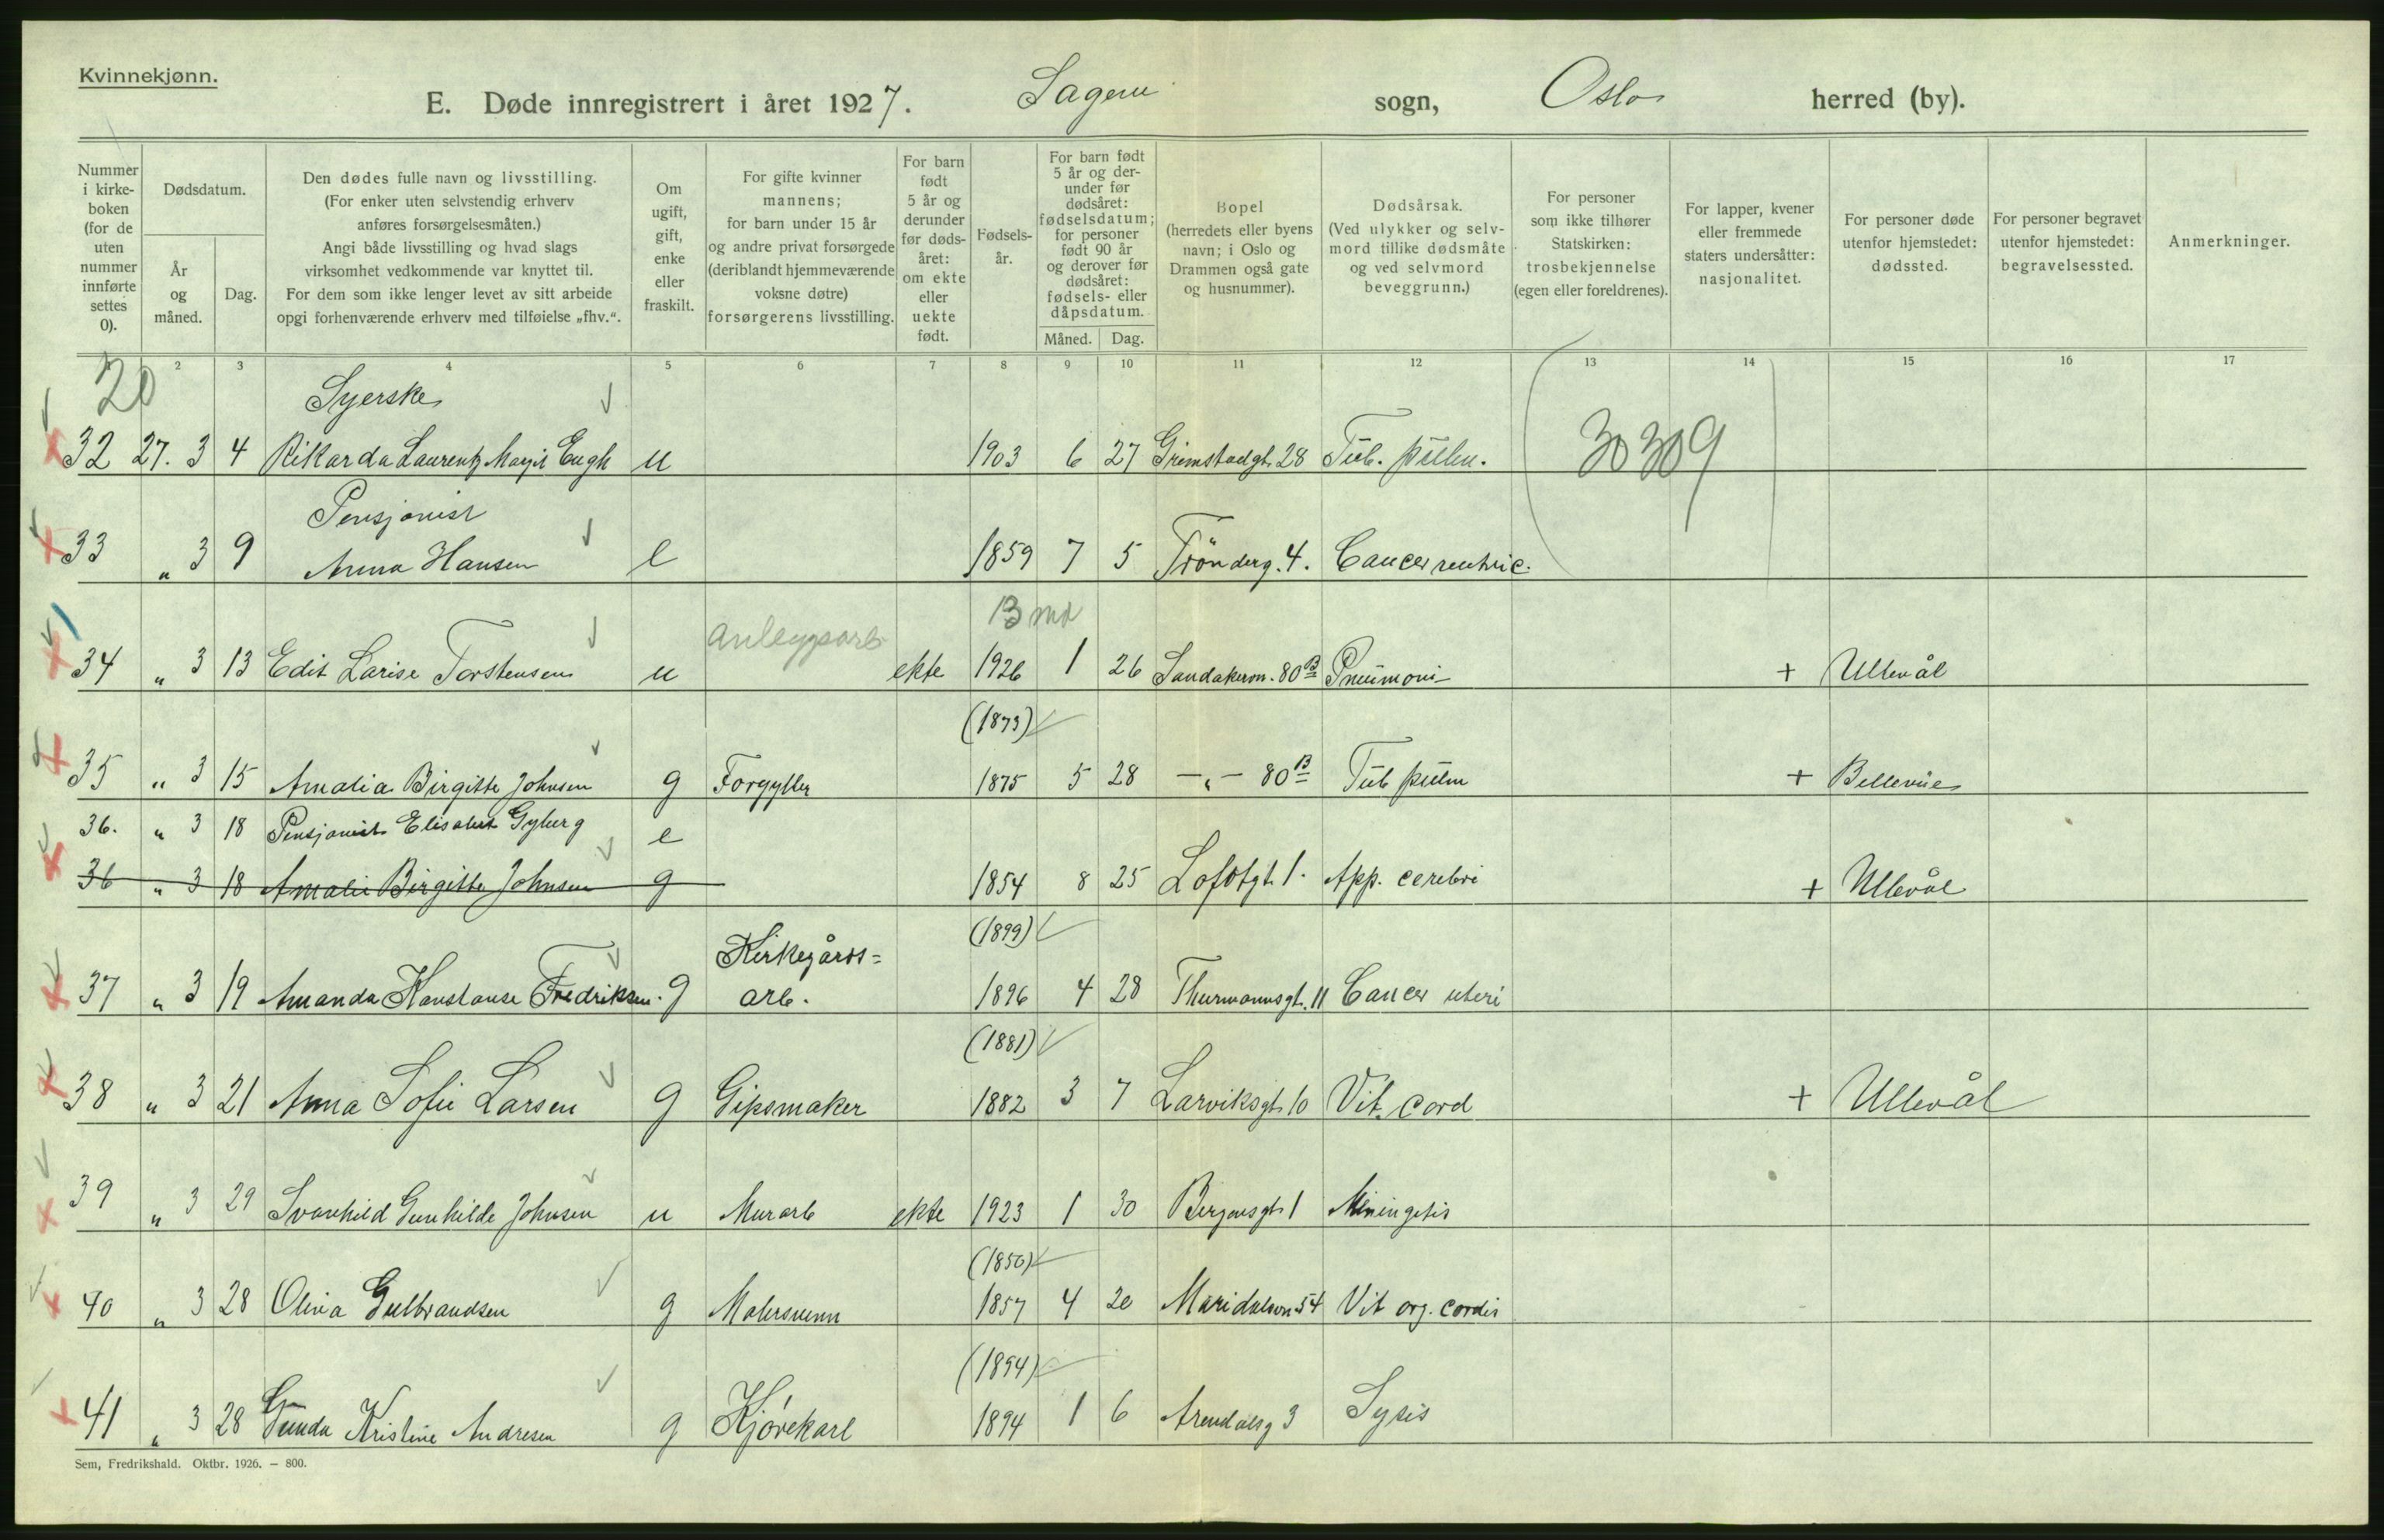 Kvinnekjønn.
E. Døde innregistrert i året 1927. Sagene sogn, Oslo herred (by).
Nummer i kirke-boken (for de uten nummer innførte settes 0).
Dødsdatum.
År og måned.
Dag.
Den dødes fulle navn og livsstilling.
(For enker uten selvstendig erhverv
anføres forsørgelsesmåten.)
Angi både livsstilling og hvad slags
virksomhet vedkommende var knyttet til.
For dem som ikke lenger levet av sitt arbeide
opgi forhenværende erhverv med tilføielse „fhv.“.
Om ugift, gift, enke eller fraskilt.
For gifte kvinner
mannens;
for barn under 15 år
og andre privat forsørgede
(deriblandt hjemmeværende
voksne døtre)
forsørgerens livsstilling.
For barn født 5 år og derunder før døds-året: om ekte eller uekte født.
Fødsels-år.
For barn født 5 år og der-under før dødsåret: fødselsdatum; for personer født 90 år og derover før dødsåret: fødsels- eller dåpsdatum.
Måned. Dag.
Bopel
(herredets eller byens
navn; i Oslo og
Drammen også gate
og husnummer).
Dødsårsak.
(Ved ulykker og selv-
mord tillike dødsmåte
og ved selvmord
beveggrunn.)
For personer
som ikke tilhører
Statskirken:
trosbekjennelse
(egen eller foreldrenes).
For lapper, kvener
eller fremmede
staters undersåtter:
nasjonalitet.
For personer døde
utenfor hjemstedet:
dødssted.
For personer begravet
utenfor hjemstedet:
begravelsessted.
Anmerkninger.
1 2 3 4 5 6 7 8 9 10 11 12 13 14 15 16 17
20
Syerske
32 27. 3 4 Rikarda Laurentz Margit Engh u 1903 6 27 Grimstadgt. 28 Tub. pulm. 30309
Pensjonist
33 " 3 9 Anna Hansen e 1859 7 5 Trönderg. 4. Cancer ventric.
anleggsarb 13 md
34 " 3 13 Edit Larise Torstensen u ekte 1926 1 26 Sandakervn. 80B Pneumoni + Ullevål
(1873)
35 " 3 15 Amalia Birgitte Johnsen g Forgyller 1875 5 28 -"- 80B Tub pulm + Bellevue
36. " 3 18 Pensjonist Elisabet Gyberg e
36 " 3 18 Amalie Birgitte Johnsen g 1854 8 25 Lofotgt. 1. App. cerebri + Ullevål
(1899)
Kirkegårds=
37 " 3 19 Amanda Konstanse Fredriksen. g arb. 1896 4 28 Thurmannsgt. 11 Cancer uteri
(1881)
38 " 3 21 Anna Sofie Larsen g Gipsmaker 1882 3 7 Larviksgt. 10 Vit. cord + Ullevål
39 " 3 29 Svanhild Gunhilde Johnsen u Murarb ekte 1923 1 30 Bergensgt. 1 Meningitis
(1856)
40 " 3 28 Olivia Gulbrandsen g Malersvenn 1857 4 20 Maridalsvn 54 Vit org. cordis
(1894)
41 " 3 28 Gunda Kristine Andresen g Kjørekarl 1894 1 6 Arendalsg 3
Sem, Fredrikshald. Oktbr. 1926. — 800.